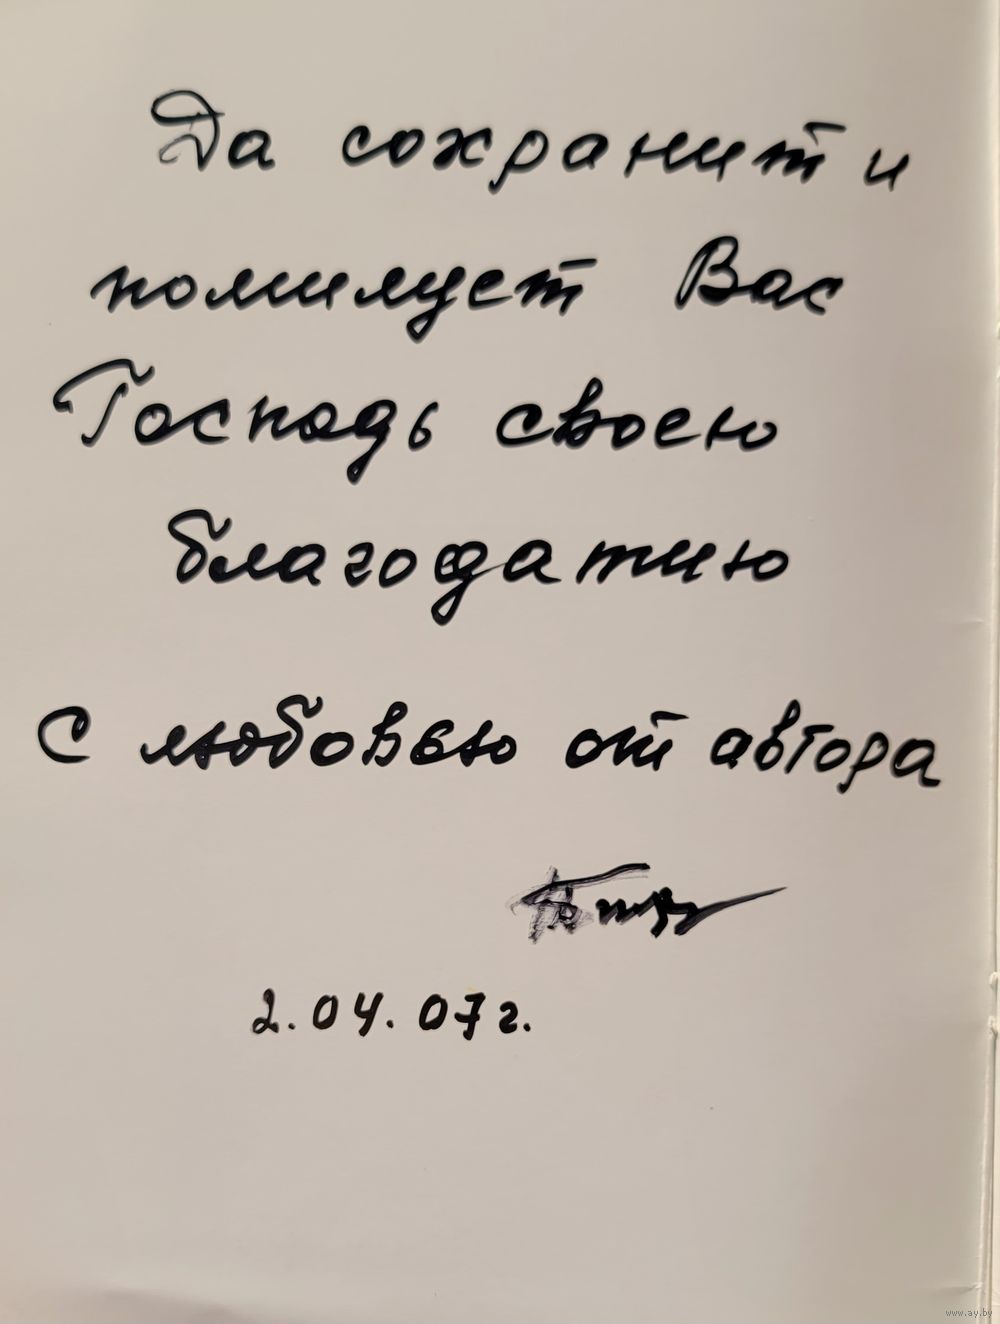 Да сохранит и
помилует Вас
Господь своею
благодатию
С любовью от автора
2.04.07г.
www.ay.by